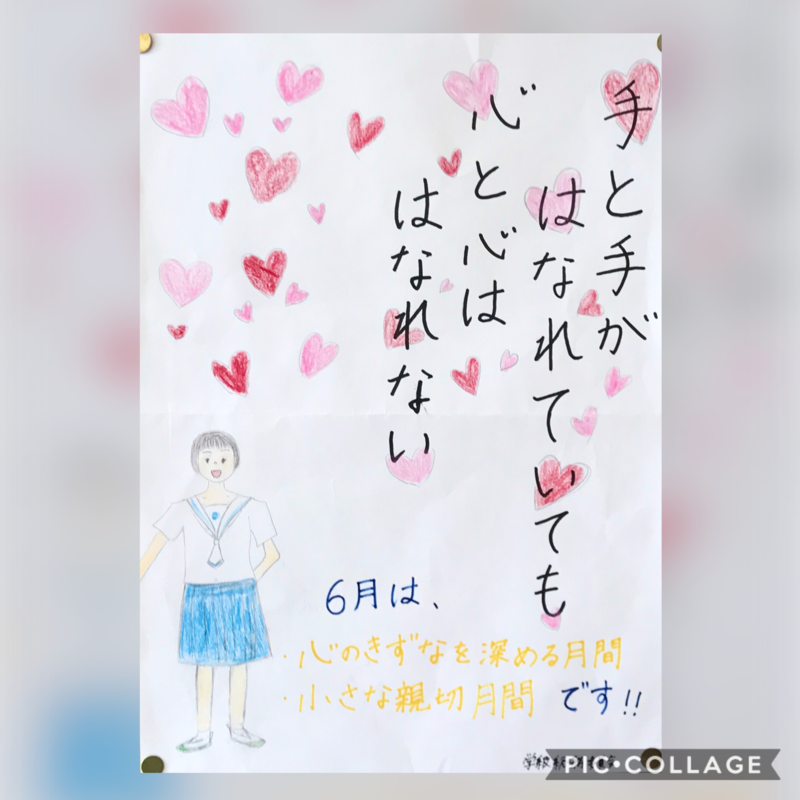 手と手が
はなれていても
心と心は
はなれない
6月は、
・心のきずなを深める月間
・小さな親切月間 です!!
PIC•COLLAGE